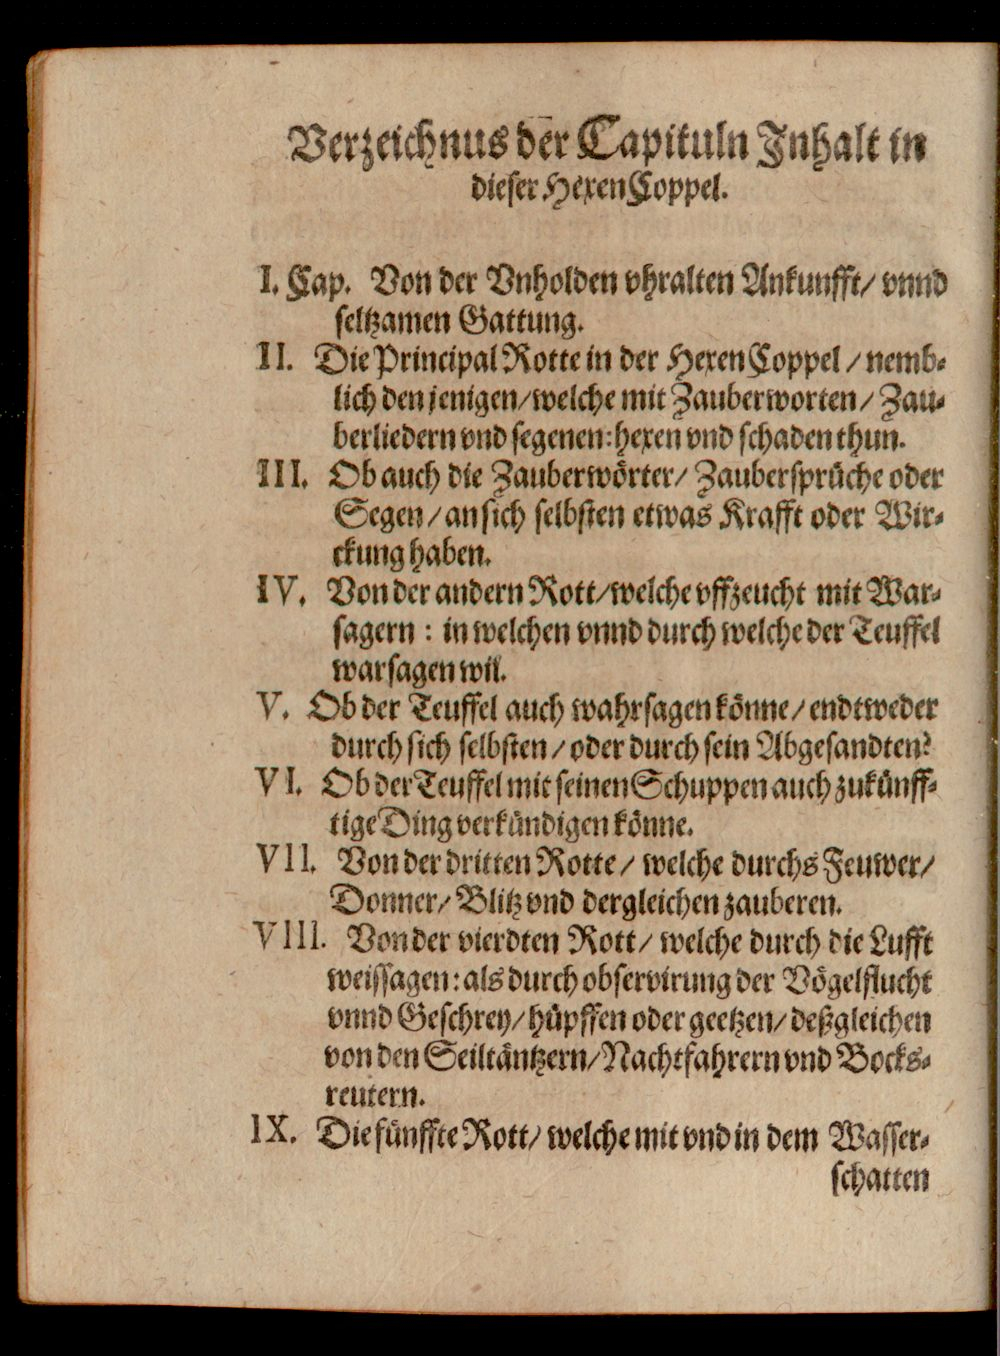 Verzeichnus der Capituln Inhalt in
dieser HexenCoppel.
I. Cap. Von der Vnholden vhralten Ankunfft/ vnnd
seltzamen Gattung.
II. Die Principal Rotte in der HexenCoppel / nemb-
lich den jenigen/welche mit Zauberworten/ Zau-
berliedern vnd segenen: hexen vnd schaden thun.
III. Ob auch die Zauberwörter/ Zaubersprüche oder
Segen/ an sich selbsten etwas Krafft oder Wir-
ckung haben.
IV. Von der andern Rott/welche vffzeucht mit War-
sagern : in welchen vnnd durch welche der Teuffel
warsagen wil.
V. Ob der Teuffel auch wahrsagen könne/ endtweder
durch sich selbsten/ oder durch sein Abgesandten?
VI. Ob der Teuffel mit seinen Schuppen auch zukünff-
tige Ding verkündigen könne.
VII. Von der dritten Rotte/ welche durchs Feuwer/
Donner/ Blitz vnd dergleichen zauberen.
VIII. Von der vierdten Rott/ welche durch die Lufft
weissagen: als durch observirung der Vögelflucht
vnnd Geschrey/ hüpffen oder geetzen/ deßgleichen
von den Seiltäntzern/Nachtfahrern vnd Bocks-
reutern.
IX. Die fünffte Rott/ welche mit vnd in dem Wasser-
schatten